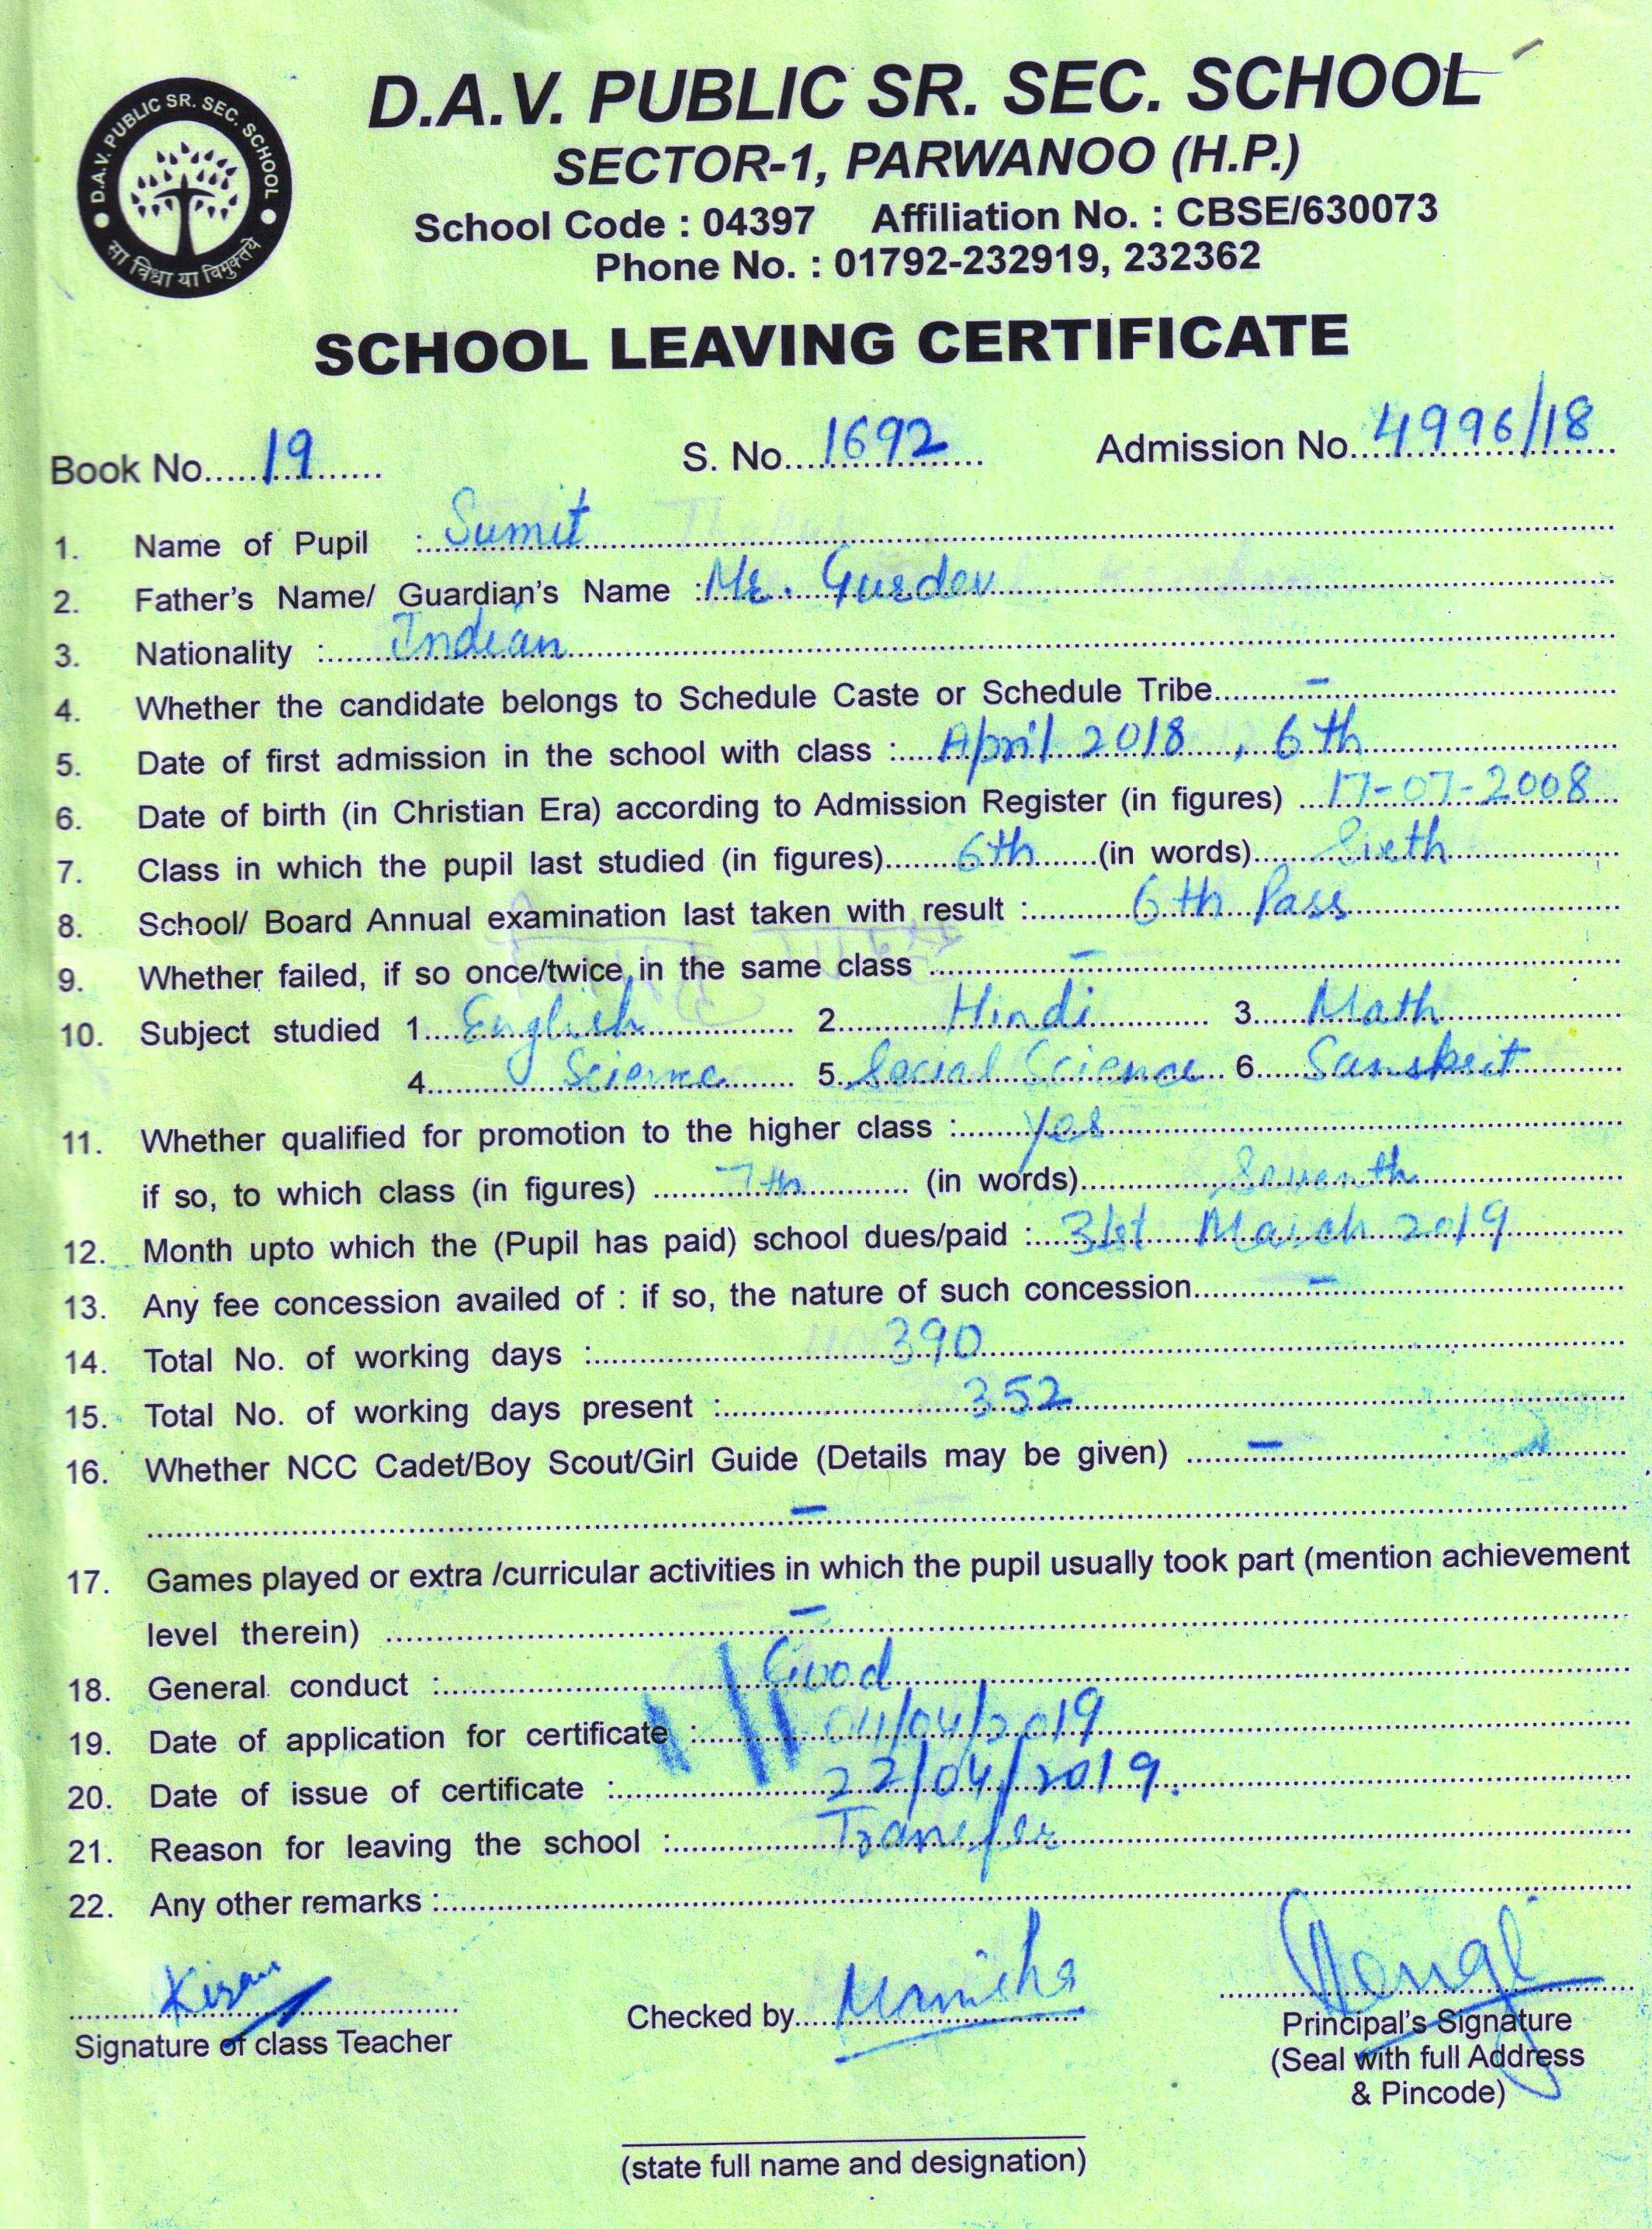 D.A.V. PUBLIC SR. SEC. SCHOOL
D.A.V. PUBLIC SR. SEC. SCHOOL
सा विद्या या विमुक्तये
SECTOR-1, PARWANOO (H.P.)
School Code : 04397 Affiliation No. : CBSE/630073
Phone No. : 01792-232919, 232362
SCHOOL LEAVING CERTIFICATE
Book No. 19 S. No. 1692 Admission No. 4996/18
1. Name of Pupil : Sumit
2. Father's Name/ Guardian's Name : Mr. Gurdev
3. Nationality : Indian
4. Whether the candidate belongs to Schedule Caste or Schedule Tribe –
5. Date of first admission in the school with class : April 2018, 6th
6. Date of birth (in Christian Era) according to Admission Register (in figures) 17-07-2008
7. Class in which the pupil last studied (in figures) 6th (in words) Sixth
8. School/ Board Annual examination last taken with result : 6th Pass
9. Whether failed, if so once/twice in the same class –
10. Subject studied 1. English 2. Hindi 3. Math
4. Science 5. Social Science 6. Sanskrit
11. Whether qualified for promotion to the higher class : Yes
if so, to which class (in figures) 7th (in words) Seventh
12. Month upto which the (Pupil has paid) school dues/paid : 31st March 2019
13. Any fee concession availed of : if so, the nature of such concession –
14. Total No. of working days : 390
15. Total No. of working days present : 352
16. Whether NCC Cadet/Boy Scout/Girl Guide (Details may be given) –
–
17. Games played or extra /curricular activities in which the pupil usually took part (mention achievement
level therein) –
18. General conduct : Good
19. Date of application for certificate : 04/04/2019
20. Date of issue of certificate : 22/04/2019.
21. Reason for leaving the school : Transfer
22. Any other remarks :
Kiran Manisha
Signature of class Teacher Checked by Principal's Signature
(Seal with full Address
& Pincode)
(state full name and designation)